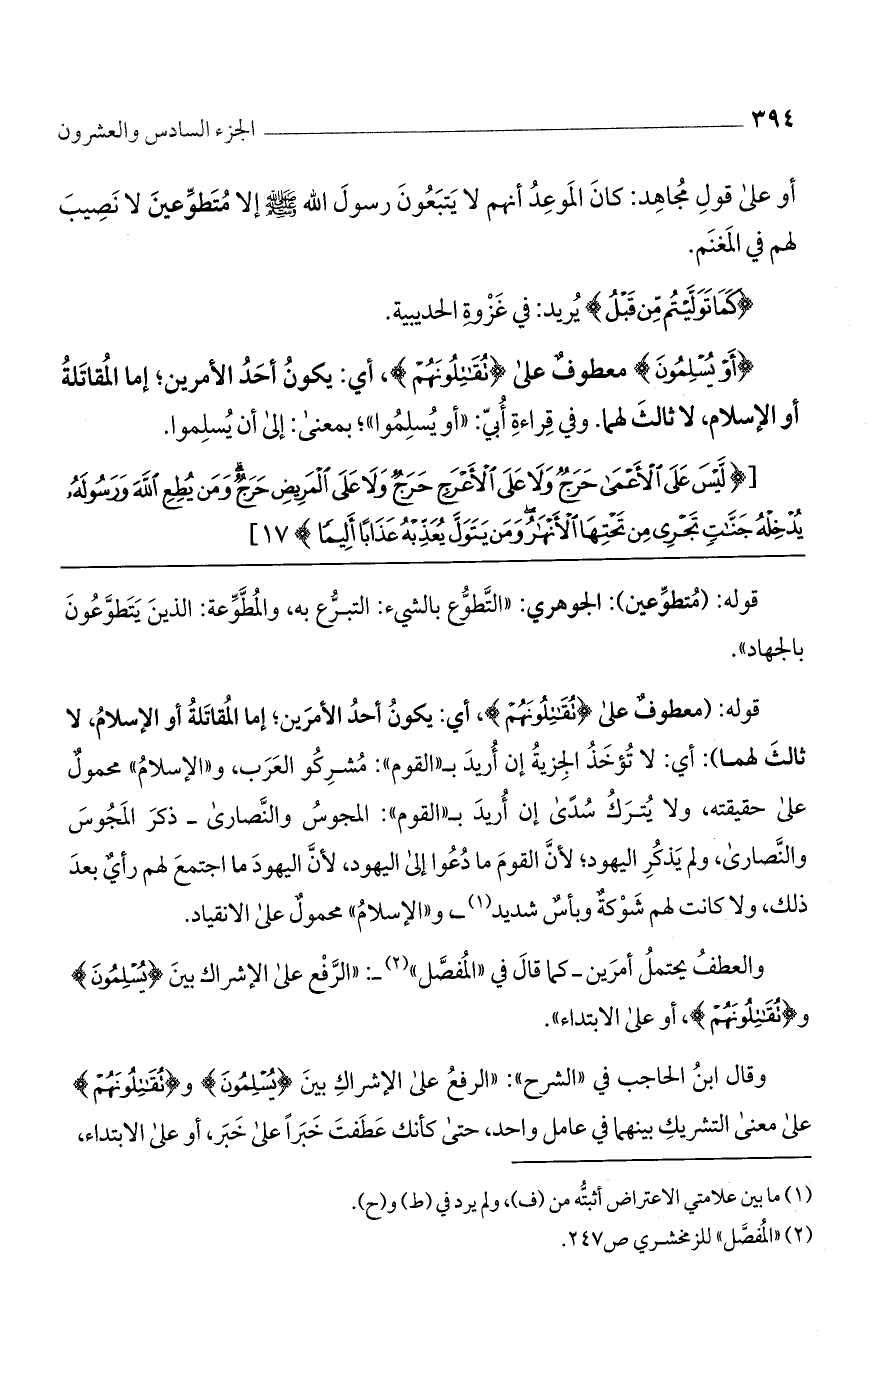 ٣٩٤ ــــــــ الجزء السادس والعشرون
أو علىٰ قولِ مُجاهِد: كانَ المَوعِدُ أنهم لا يَتبَعُونَ رسولَ الله ﷺ إلا مُتَطوِّعينَ لا نَصِيبَ
لهم في المَغنَم.
﴿كَمَا تَوَلَّيْتُم مِّن قَبْلُ﴾ يُريد: في غَزْوةِ الحديبية.
﴿أَوْ يُسْلِمُونَ﴾ معطوفٌ علىٰ ﴿تُقَٰتِلُونَهُمْ﴾، أي: يكونُ أحَدُ الأمرين؛ إما المُقاتَلةُ
أو الإسلام، لا ثالثَ لهما. وفي قِراءةِ أُبيّ: «أو يُسلِمُوا»؛ بمعنىٰ: إلىٰ أن يُسلِموا.
[﴿لَّيْسَ عَلَى ٱلْأَعْمَىٰ حَرَجٌ وَلَا عَلَى ٱلْأَعْرَجِ حَرَجٌ وَلَا عَلَى ٱلْمَرِيضِ حَرَجٌ ۗ وَمَن يُطِعِ ٱللَّهَ وَرَسُولَهُۥ
يُدْخِلْهُ جَنَّٰتٍ تَجْرِى مِن تَحْتِهَا ٱلْأَنْهَٰرُ ۖ وَمَن يَتَوَلَّ يُعَذِّبْهُ عَذَابًا أَلِيمًا﴾ ١٧]
قوله: (مُتطوِّعين): الجوهري: «التَّطوُّع بالشيء: التبرُّع به، والمُطَّوِّعة: الذينَ يَتَطوَّعُونَ
بالجهاد».
قوله: (معطوفٌ علىٰ ﴿تُقَٰتِلُونَهُمْ﴾، أي: يكونُ أحدُ الأمرَين؛ إما المُقاتَلةُ أو الإسلامُ، لا
ثالثَ لهما): أي: لا تُؤخَذُ الجِزيةُ إن أُريدَ بـ«القوم»: مُشرِكُو العَرَب، و«الإسلامُ» محمولٌ
علىٰ حقيقته، ولا يُترَكُ سُدًىٰ إن أُريدَ بـ«القوم»: المجوسُ والنَّصارىٰ ـ ذكرَ المَجُوسَ
والنَّصارىٰ، ولم يَذكُرِ اليهود؛ لأنَّ القومَ ما دُعُوا إلىٰ اليهود، لأنَّ اليهودَ ما اجتمعَ لهم رأيٌ بعدَ
ذلك، ولا كانت لهم شَوْكةٌ وبأسٌ شديد(١) ـ، و«الإسلامُ» محمولٌ علىٰ الانقياد.
والعطفُ يحتملُ أمرَين ـ كما قالَ في «المُفصَّل»(٢) ـ: «الرَّفْع علىٰ الإشراك بينَ ﴿يُسْلِمُونَ﴾
و﴿تُقَٰتِلُونَهُمْ﴾، أو علىٰ الابتداء».
وقال ابنُ الحاجب في «الشرح»: «الرفعُ علىٰ الإشراكِ بينَ ﴿يُسْلِمُونَ﴾ و﴿تُقَٰتِلُونَهُمْ﴾
علىٰ معنىٰ التشريكِ بينهما في عامل واحد، حتىٰ كأنك عَطَفتَ خَبَراً علىٰ خَبَر، أو علىٰ الابتداء،
(١) ما بين علامتي الاعتراض أثبتُّه من (ف)، ولم يرد في (ط) و(ح).
(٢) «المُفصَّل» للزمخشري ص٢٤٧.